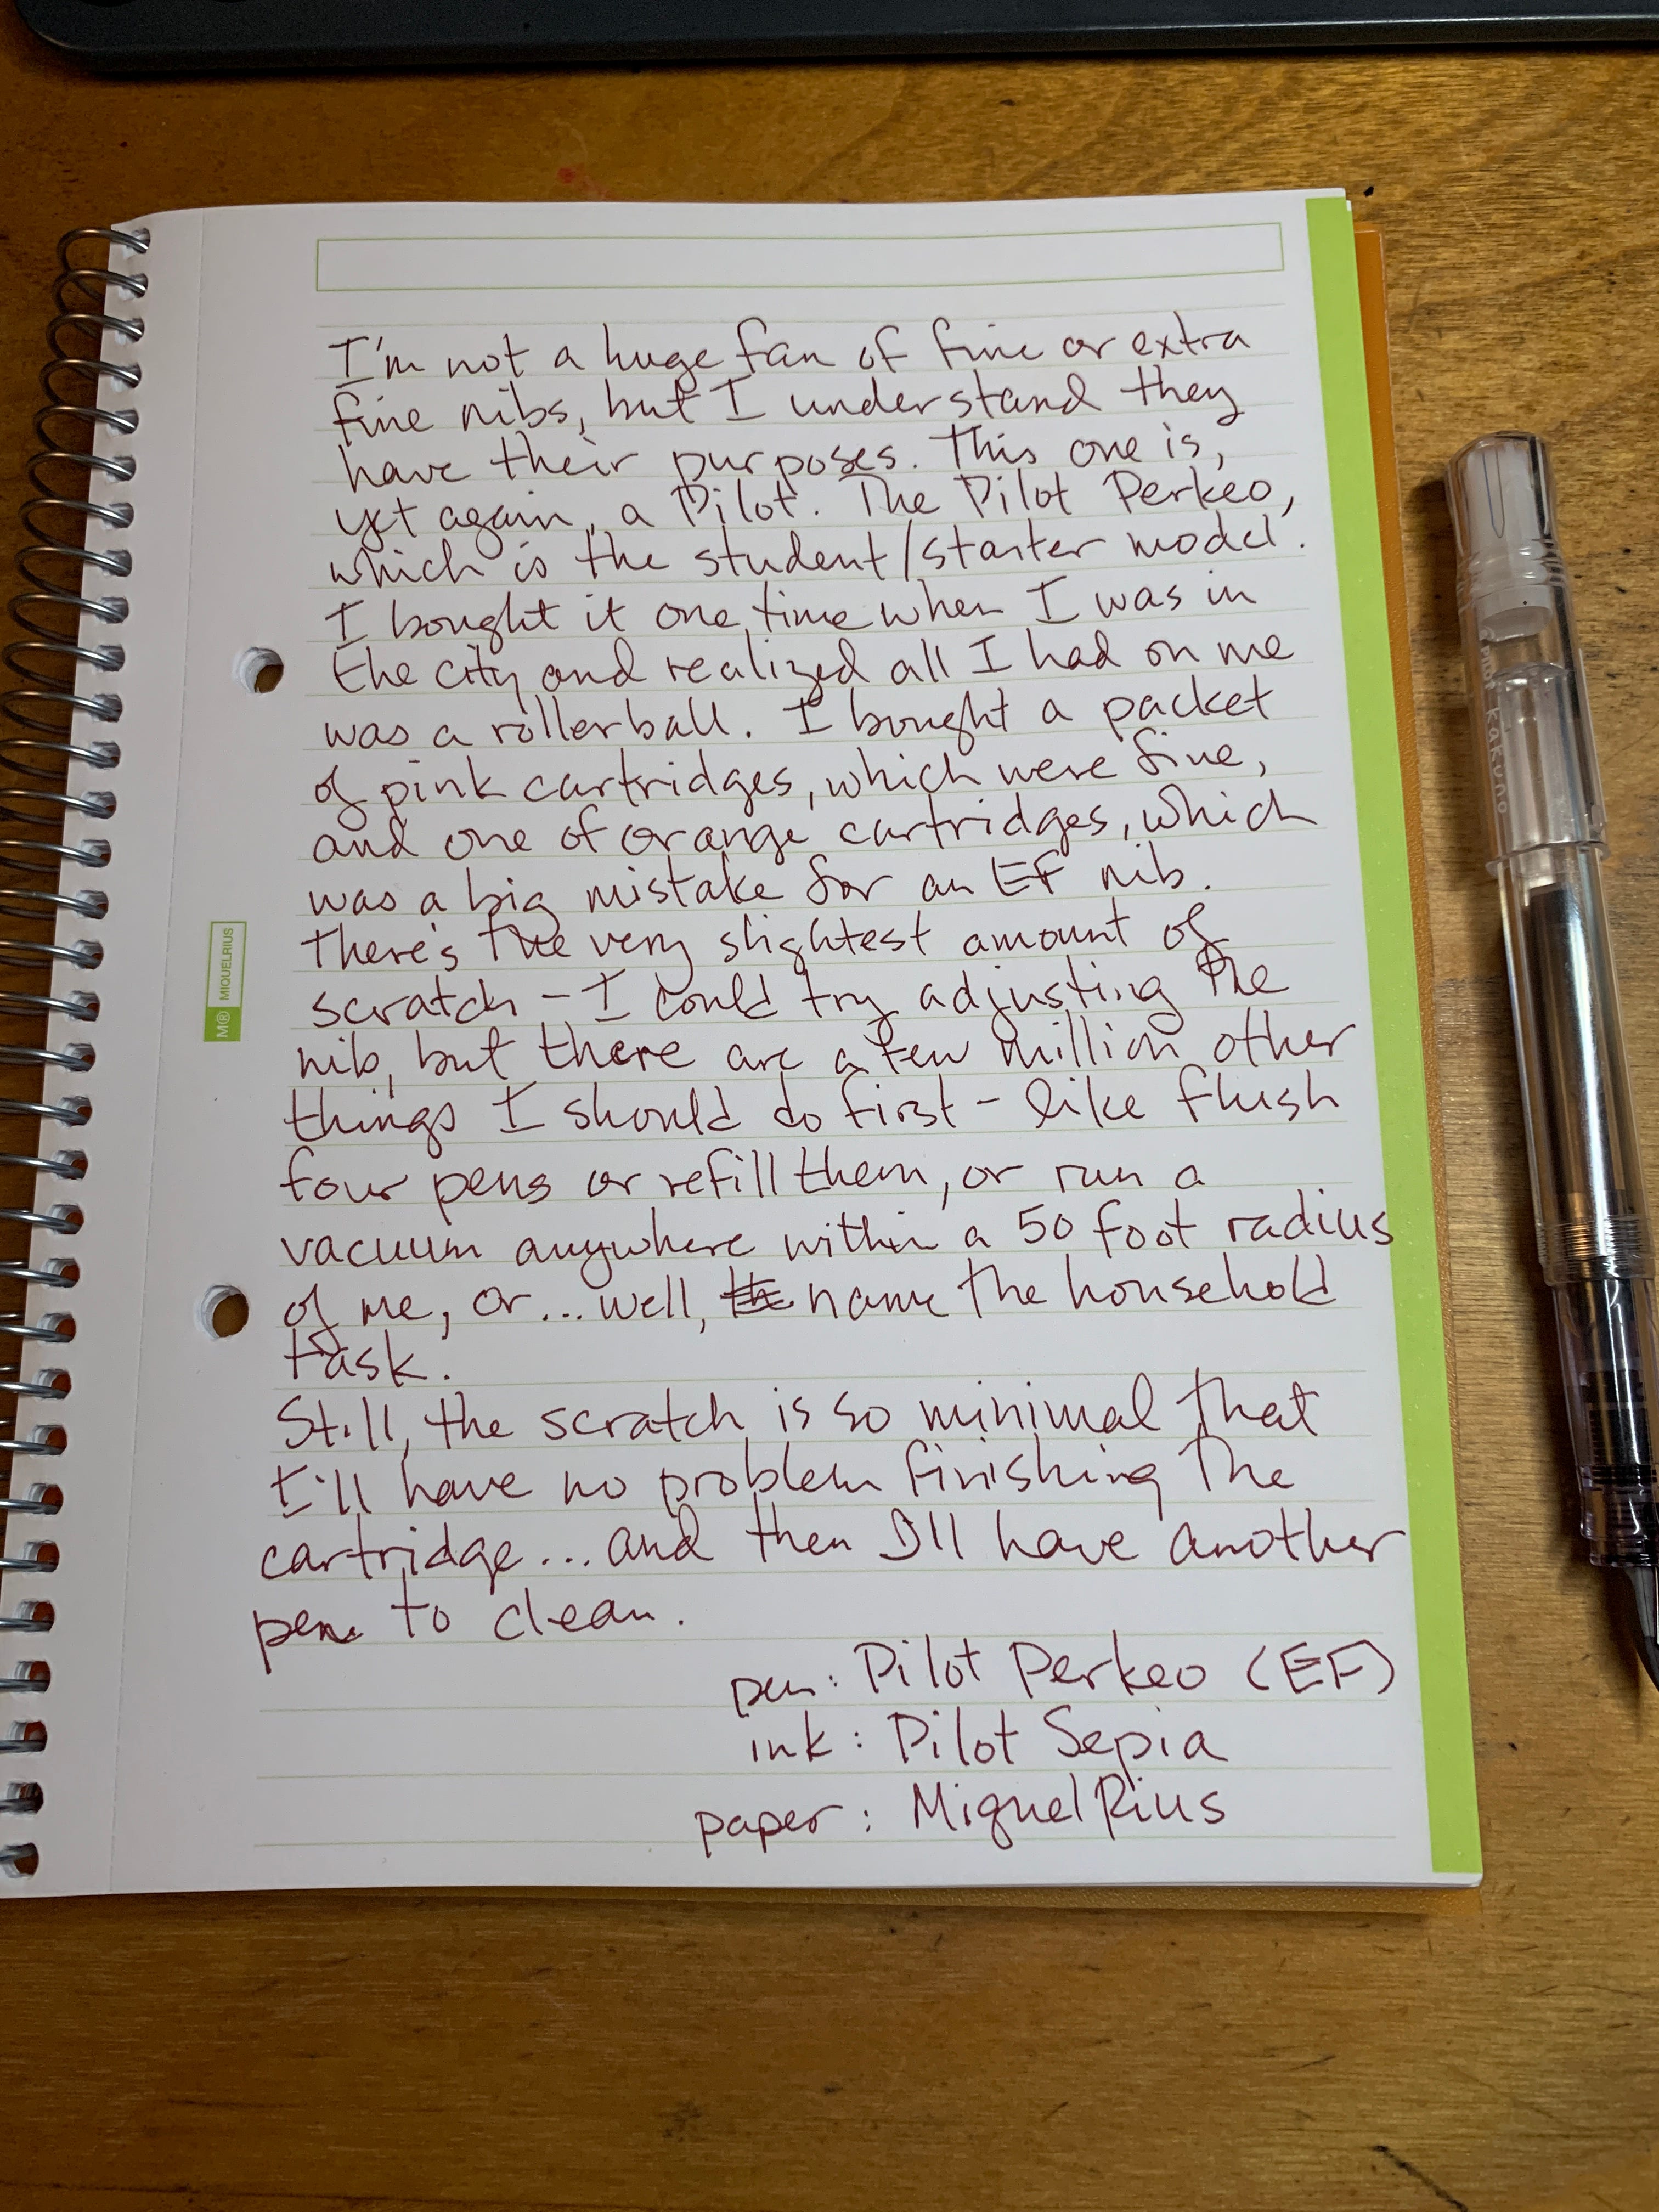 I'm not a huge fan of fine or extra
fine nibs, but I understand they
have their purposes. This one is,
yet again, a Pilot. The Pilot Perkeo,
which is the student/starter model.
I bought it one time when I was in
the city and realized all I had on me
was a rollerball. I bought a packet
of pink cartridges, which were fine,
and one of orange cartridges, which
was a big mistake for an EF nib.
There's the very slightest amount of
scratch - I could try adjusting the
nib, but there are a few million other
things I should do first - like flush
four pens or refill them, or run a
vacuum anywhere within a 50 foot radius
of me, or... well, name the household
task.
Still, the scratch is so minimal that
I'll have no problem finishing the
cartridge... and then I'll have another
pen to clean.
pen: Pilot Perkeo (EF)
ink: Pilot Sepia
paper: MiquelRius
M® MIQUELRIUS
PILOT KAKUNO